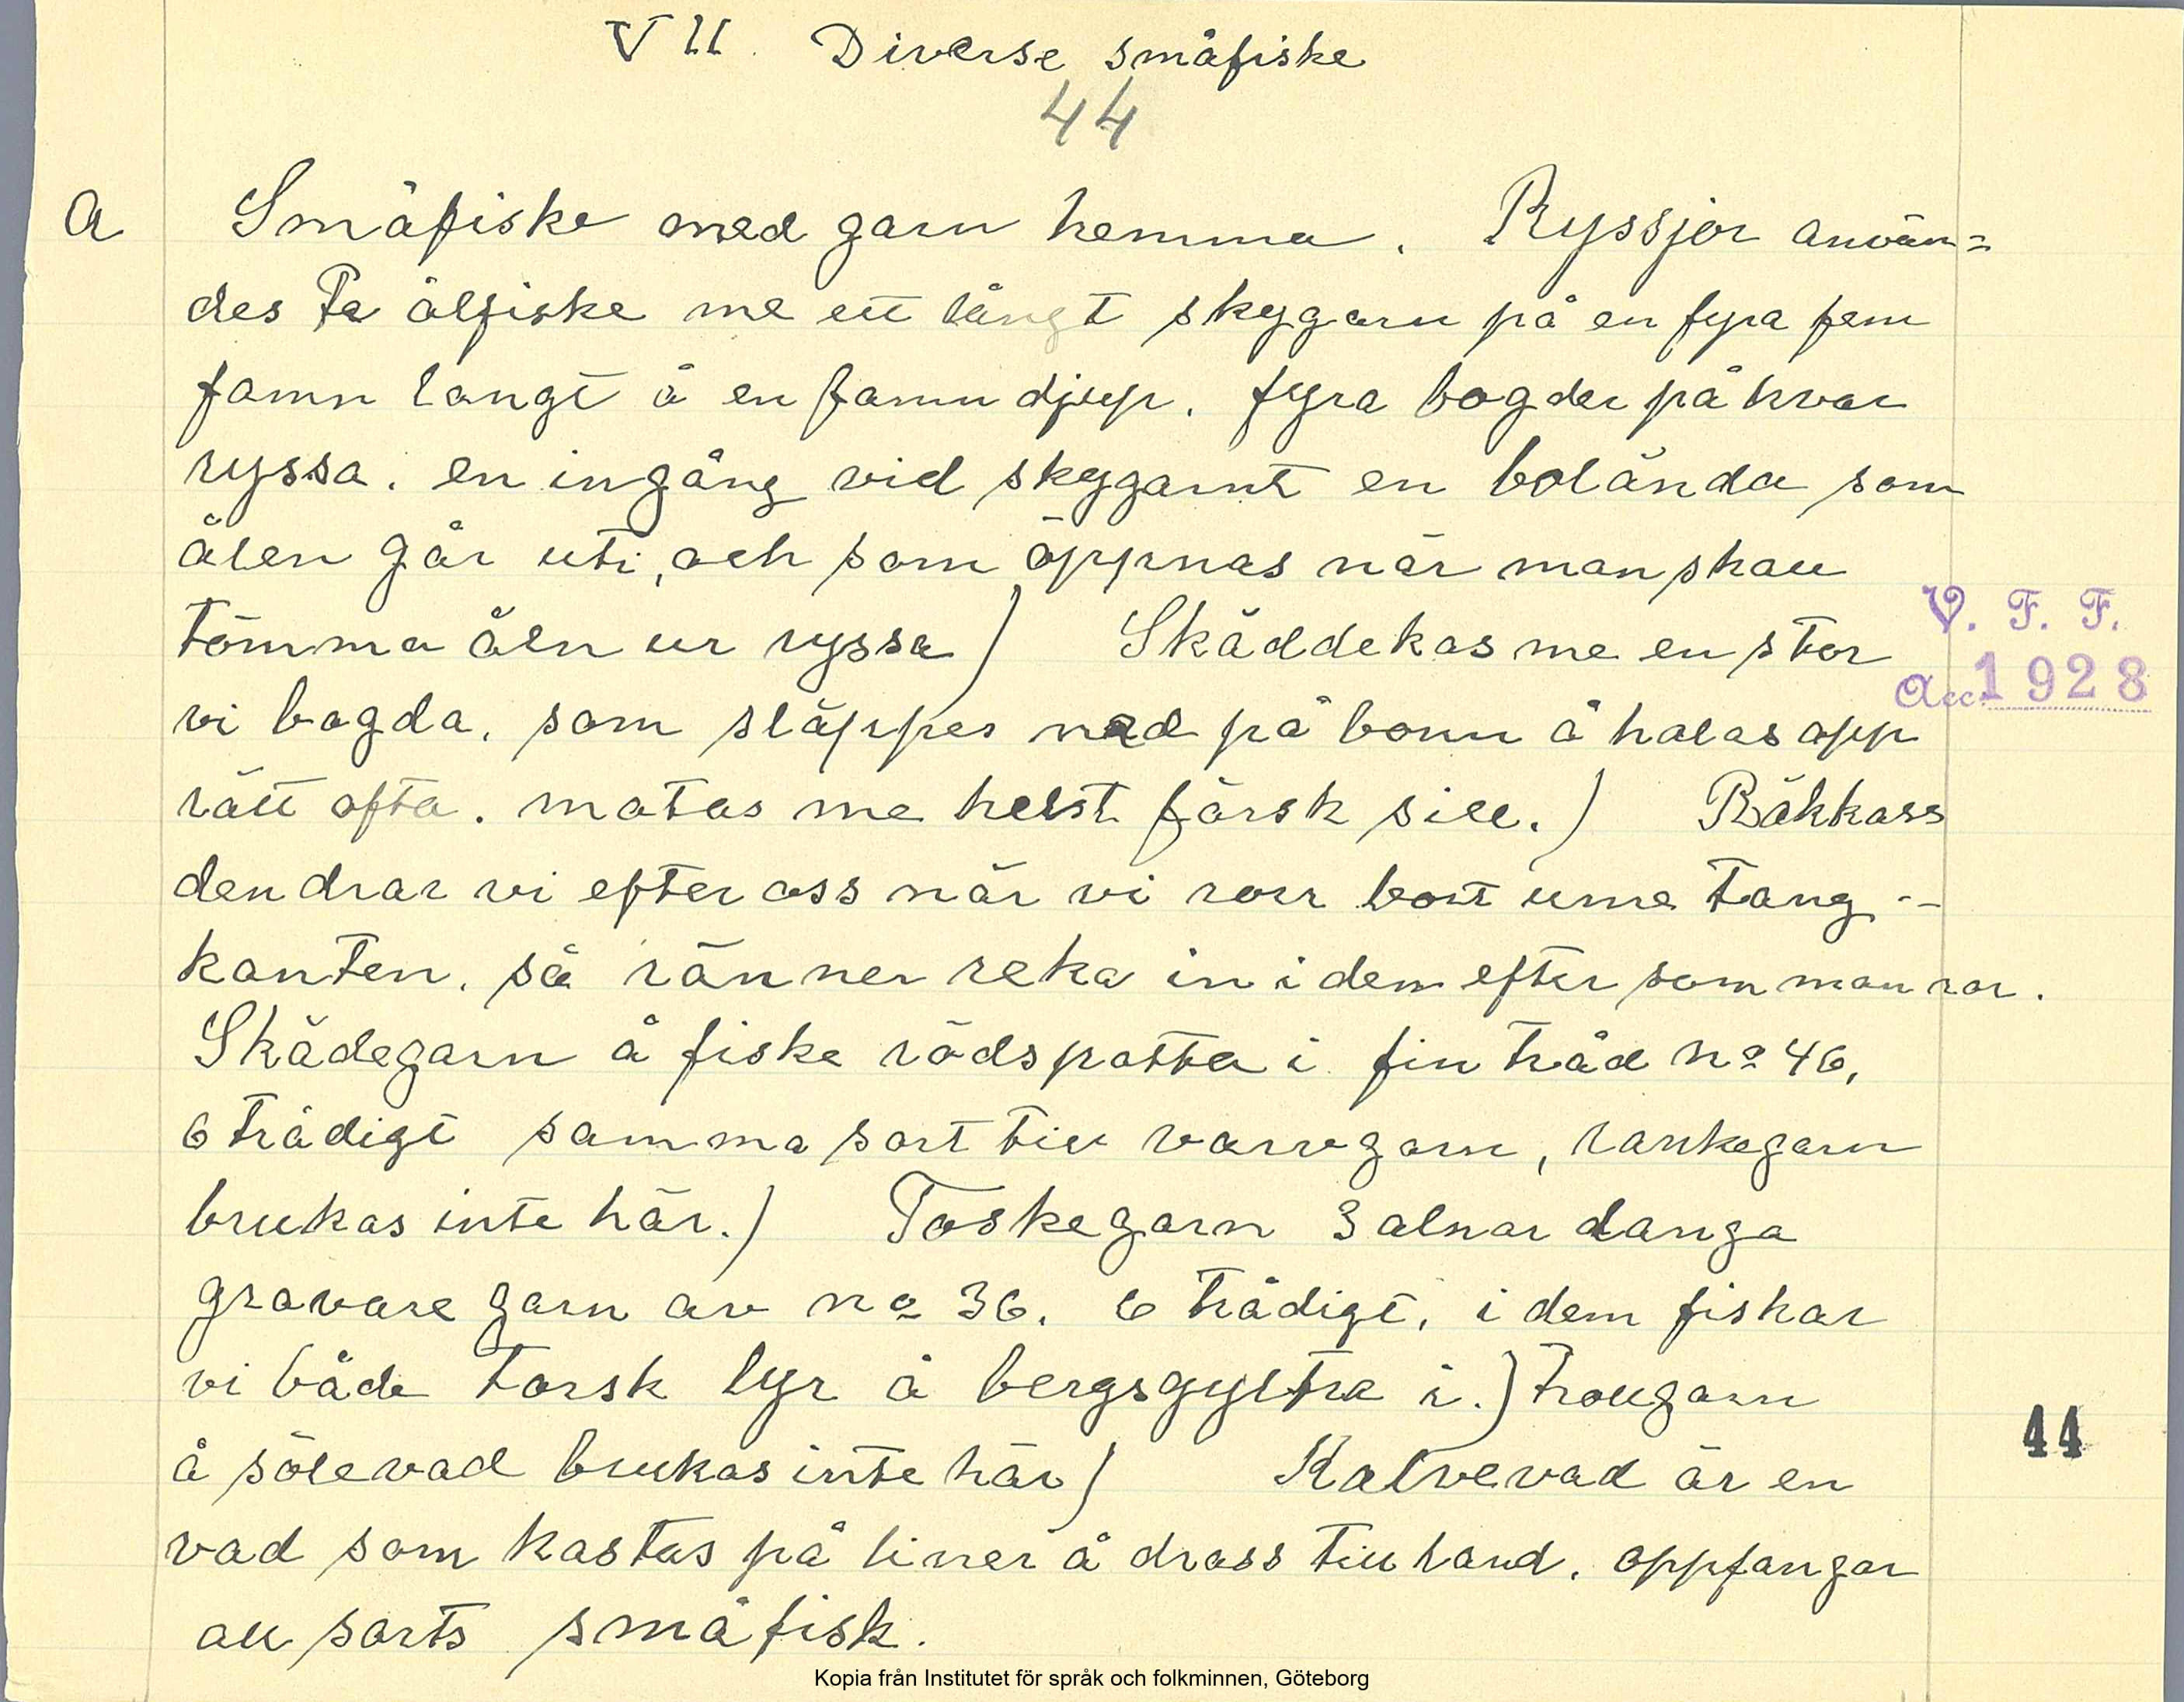 VII. Diverse småfiske
44
a Småfiske med garn hemma. Ryssjor använ=
des Te ålfiske me ett långt skygarn på en fyra fem
famn langt å en famn djup. fyra bogder på hvar
ryssa. en ingång vid skygarnt en bolända som
ålen går uti, och som öppnas när man skall
tömma åln ur ryssa) Skäddekas me en stor
vi bogda. som släppes ned på bonn å halas opp
rätt ofta. matas me helst färsk sill.) Räkkass
den drar vi efter oss när vi rorr bort ume tang--
kanten. så ränner reka in i dem efter som man ror.
Skädegarn å fiske rödspotta i fin tråd No 46,
6 trådigt samma sort till varvgarn, rankegarn
brukas inte här.) Toskegarn 3 alnar langa
gravare garn av no 36. 6 trådigt, i dem fiskar
vi både torsk lyr å bergsgyltra i.) trougarn
å sölevad brukas inte här)
Kalvevad är en
vad som kastas på liner å drass till land. oppfangar
all sorts småfisk.
V. F. F.
Acc. 1928
44
Kopia från Institutet för språk och folkminnen, Göteborg